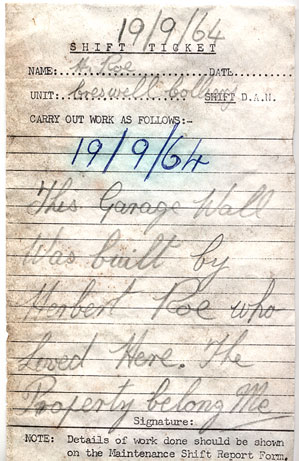 19/9/64
SHIFT TICKET
NAME: H. Roe DATE
UNIT: Creswell Colliery SHIFT D.A.N.
CARRY OUT WORK AS FOLLOWS:-
19/9/64
This Garage Wall
Was built by
Herbert Roe who
Lived Here. The
Property belong Me
Signature:
NOTE: Details of work done should be shown
on the Maintenance Shift Report Form.